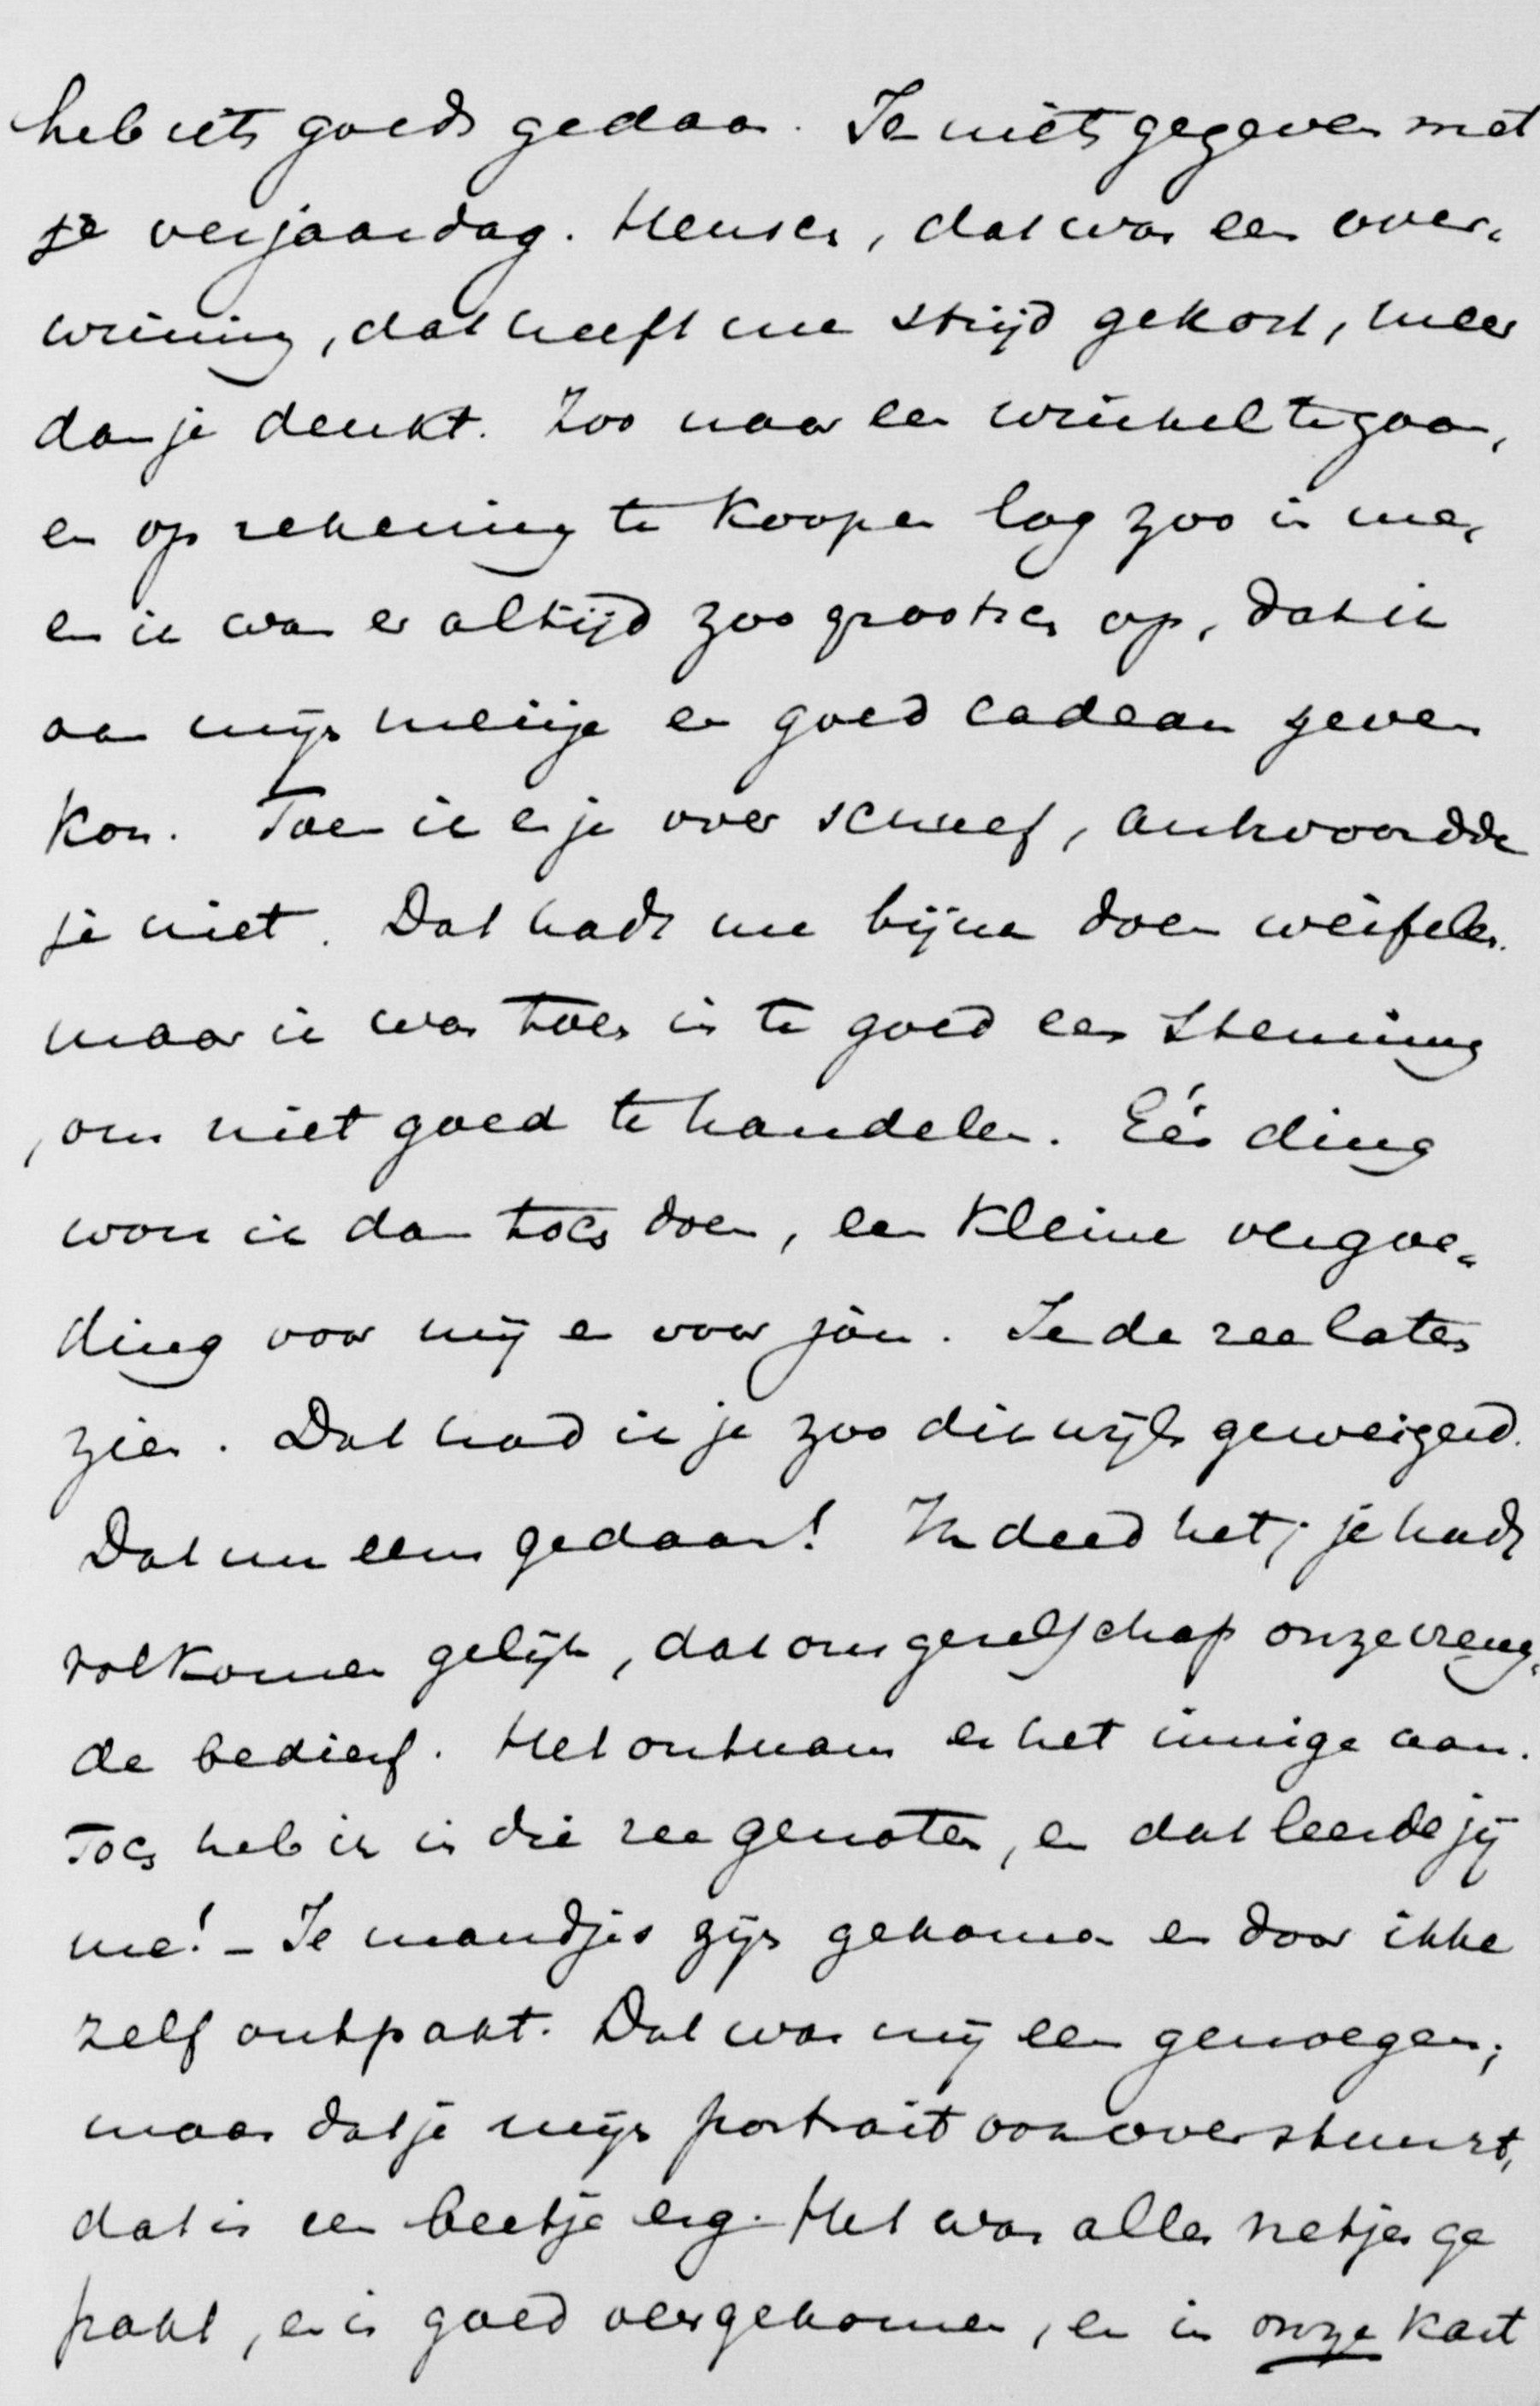 heb iets goeds gedaan. Je niets gegeven met
je verjaardag. Heusch, dat was een over-
winning, dat heeft me strijd gekost, meer
dan je denkt. Zoo naar een winkel te gaan,
en op rekening te koopen lag zoo in me,
en ik was er altijd zoo grootsch op, dat ik
aan mijn meisje een goed cadeau geven
kon. Toen ik er je over schreef, antwoordde
je niet. Dat hads me bijna doen weifelen.
maar ik was toen in te goed een stemming
, om niet goed te handelen. Eén ding
wou ik dan toch doen, een kleine vergoe-
ding voor mij en voor jou. Je de zee laten
zien. Dat had ik je zoo dikwijls geweigerd.
Dat nu eens gedaan! Ik deed het; je hads
volkomen gelijk, dat ons gezelschap onze vreug-
de bedierf. Het ontnam er het innige aan.
Toch heb ik in die zee genoten, en dat leerde jij
me! – Je mandjes zijn gekomen en door ikke
zelf ontpakt. Dat was mij een genoegen;
maar dat je mijn portrait ook overstuurt,
dat is een beetje erg. Het was alles netjes ge
pakt, en is goed overgekomen, en in onze kast